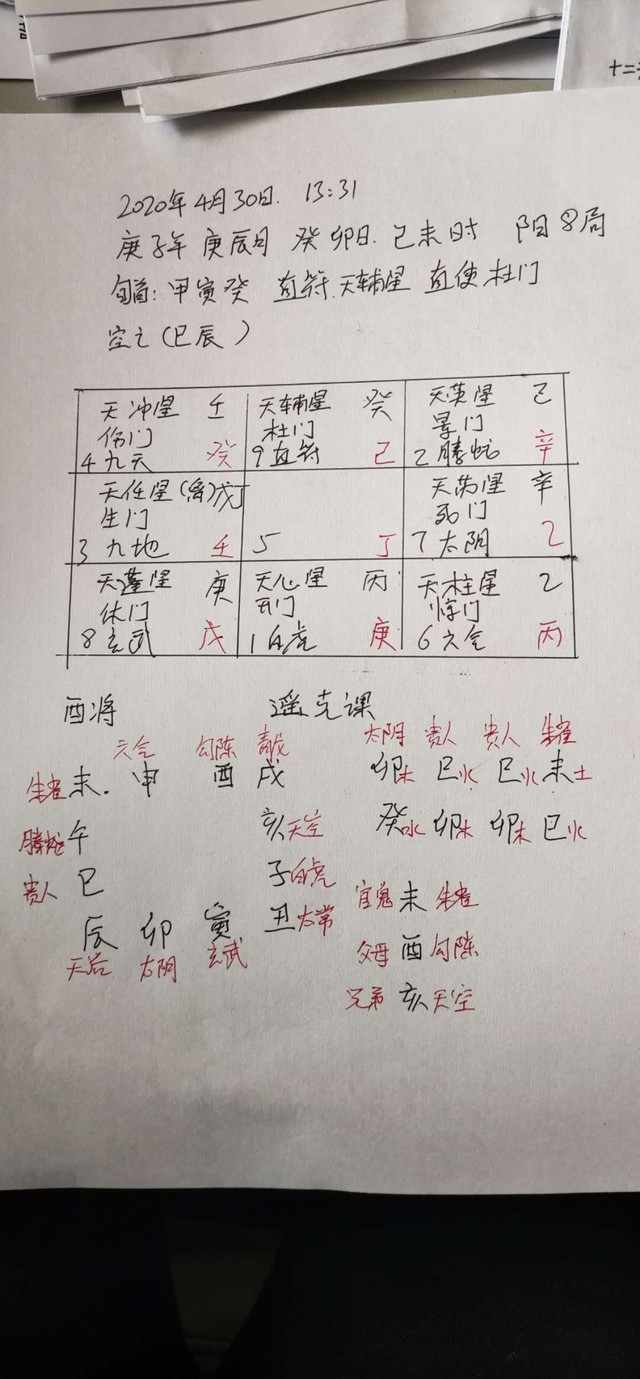 十二
2020年4月30日. 13:31
庚子年 庚辰月 癸卯日. 己未时 阳8局
旬首: 甲寅癸 直符.天辅星 直使.杜门
空亡(巳辰)
天冲星 壬 天辅星 癸 天英星 己
伤门 杜门 景门
4九天 癸 9直符 己 2腾蛇 辛
天任星 (禽)戊丁 天芮星 辛
生门 死门
3九地 壬 5 丁 7太阴 乙
天蓬星 庚 天心星 丙 天柱星 乙
休门 开门 惊门
8玄武 戊 1白虎 庚 6六合 丙
酉将 遥克课
六合 勾陈 青龙 太阴 贵人 贵人 朱雀
朱雀 未. 申 酉 戌 卯木 巳火 巳火 未土
腾蛇 午 亥天空 癸水 卯木 卯木 巳火
贵人 巳 子白虎
辰 卯 寅 丑太常 官鬼 未 朱雀
天后 太阴 玄武 父母 酉 勾陈
兄弟 亥 天空